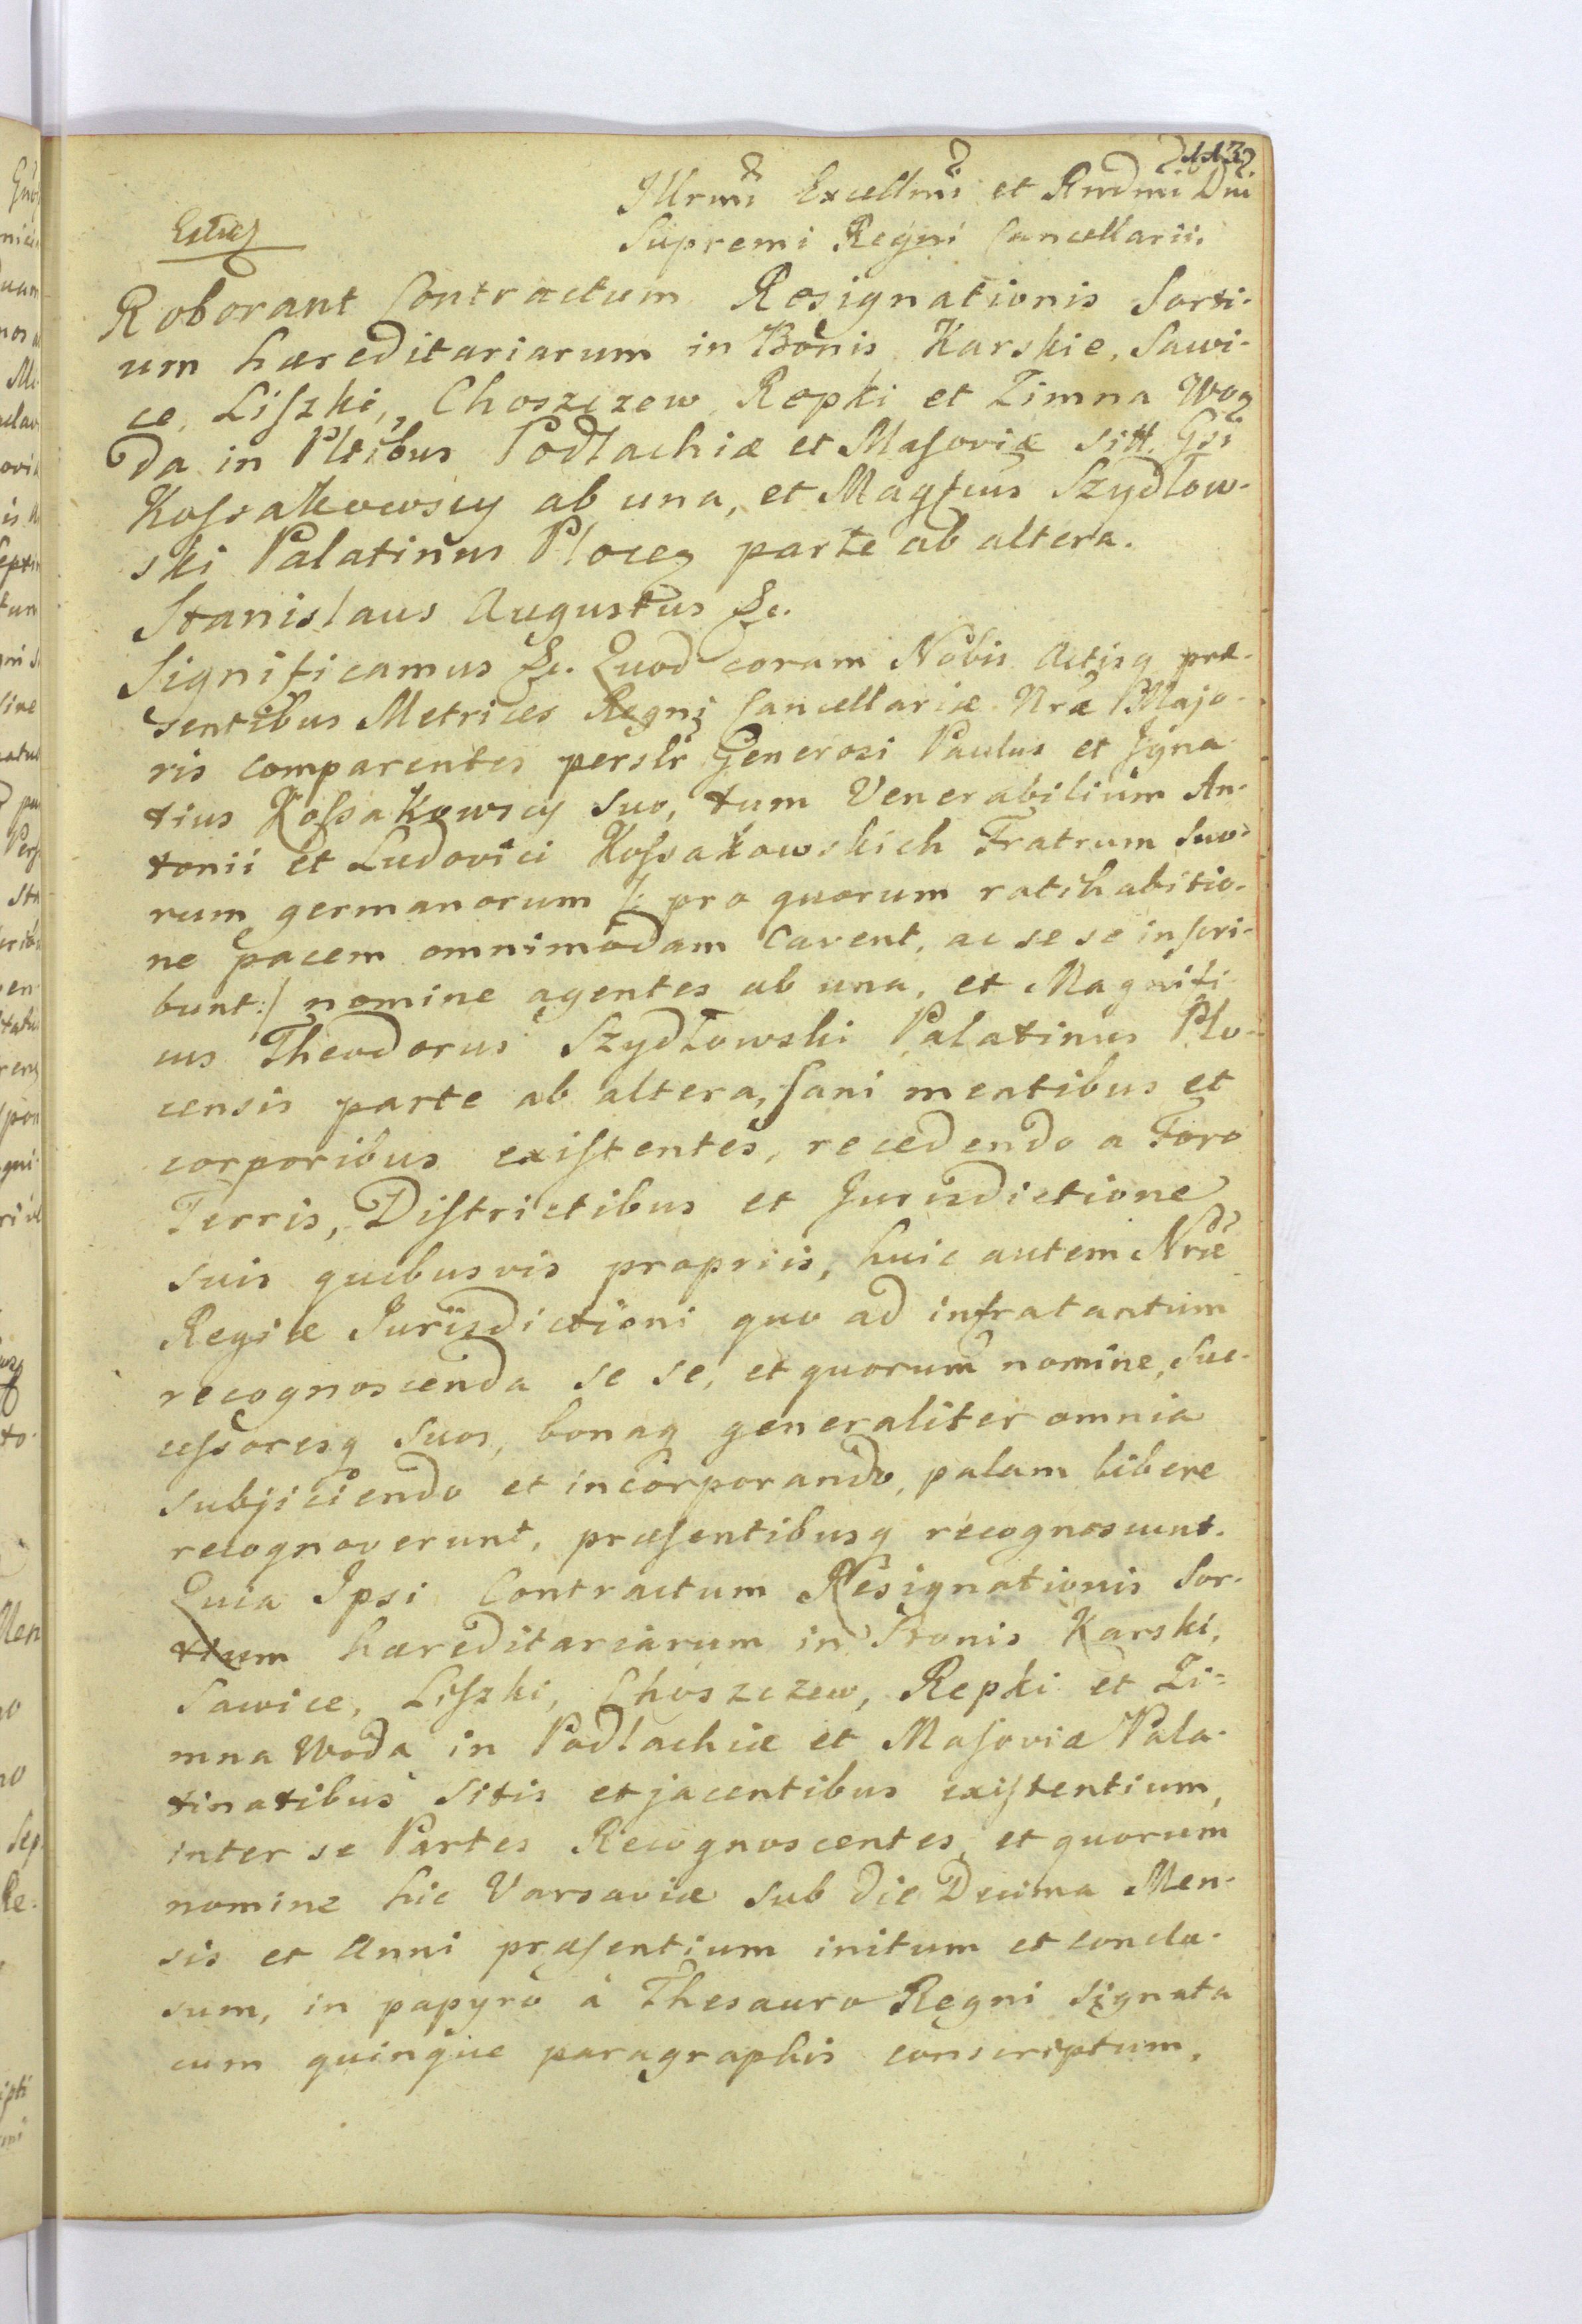 113
Illrmi Excellmi et Rndmi Dni
Supremi Regni Cancellarii.
Roborant Contractum Resignationis Sorti-
um hæreditariarum in Bonis Karskie, Sawi-
ce, Liszki, Choszczew Repki et Zimna Wo-
da in Pltibus Podlachiæ et Masoviæ sitt. Gsi
Kossakowscy ab una, et Magfcus Szydłow-
ski Palatinus Plocen parte ab altera.
Stanislaus Augustus &c.
Significamus &c. Quod coram Nobis Actisq præ-
sentibus Metrices Regni Cancellariæ Nræ Majo-
ris comparentes persłr Generosi Paulus et Igna-
tius Kossakowscy suo, tum Venerabilium An-
tonii et Ludovici Kossakowskich Fratrum suo-
rum germanorum /: pro quorum ratihabitio-
ne pacem omnimodam Cavent, ac se se inscri-
bunt :/ nomine agentes ab una, et Magnifi-
cus Theodorus Szydłowski Palatinus Plo-
censis parte ab altera, sani mentibus et
corporibus existentes, recedendo a Foro
Terris, Districtibus et Jurisdictione
suis quibusvis propriis, huic autem Nræ
Regiæ Jurisdictioni quo ad infratantum
recognoscenda se se, et quorum nomine, suc-
cessoresq suos, bonaq generaliter omnia
subjiciendo et incorporando, palam libere
recognoverunt, præsentibusq recognoscunt.
Quia Ipsi Contractum Resignationis Sor-
tium hæreditariarum in Bonis Karski,
Sawice, Liszki, Choszczew, Repki et Zi-
mna Woda in Podlachiæ et Masoviæ Pala-
tinatibus sitis et jacentibus existentium,
inter se Partes Recognoscentes, et quorum
nomine hic Varsaviæ sub die Decima Men-
sis et Anni præsentium initum et conclu-
sum, in papyro à Thesauro Regni signata
cum quinque paragraphis conscriptum,